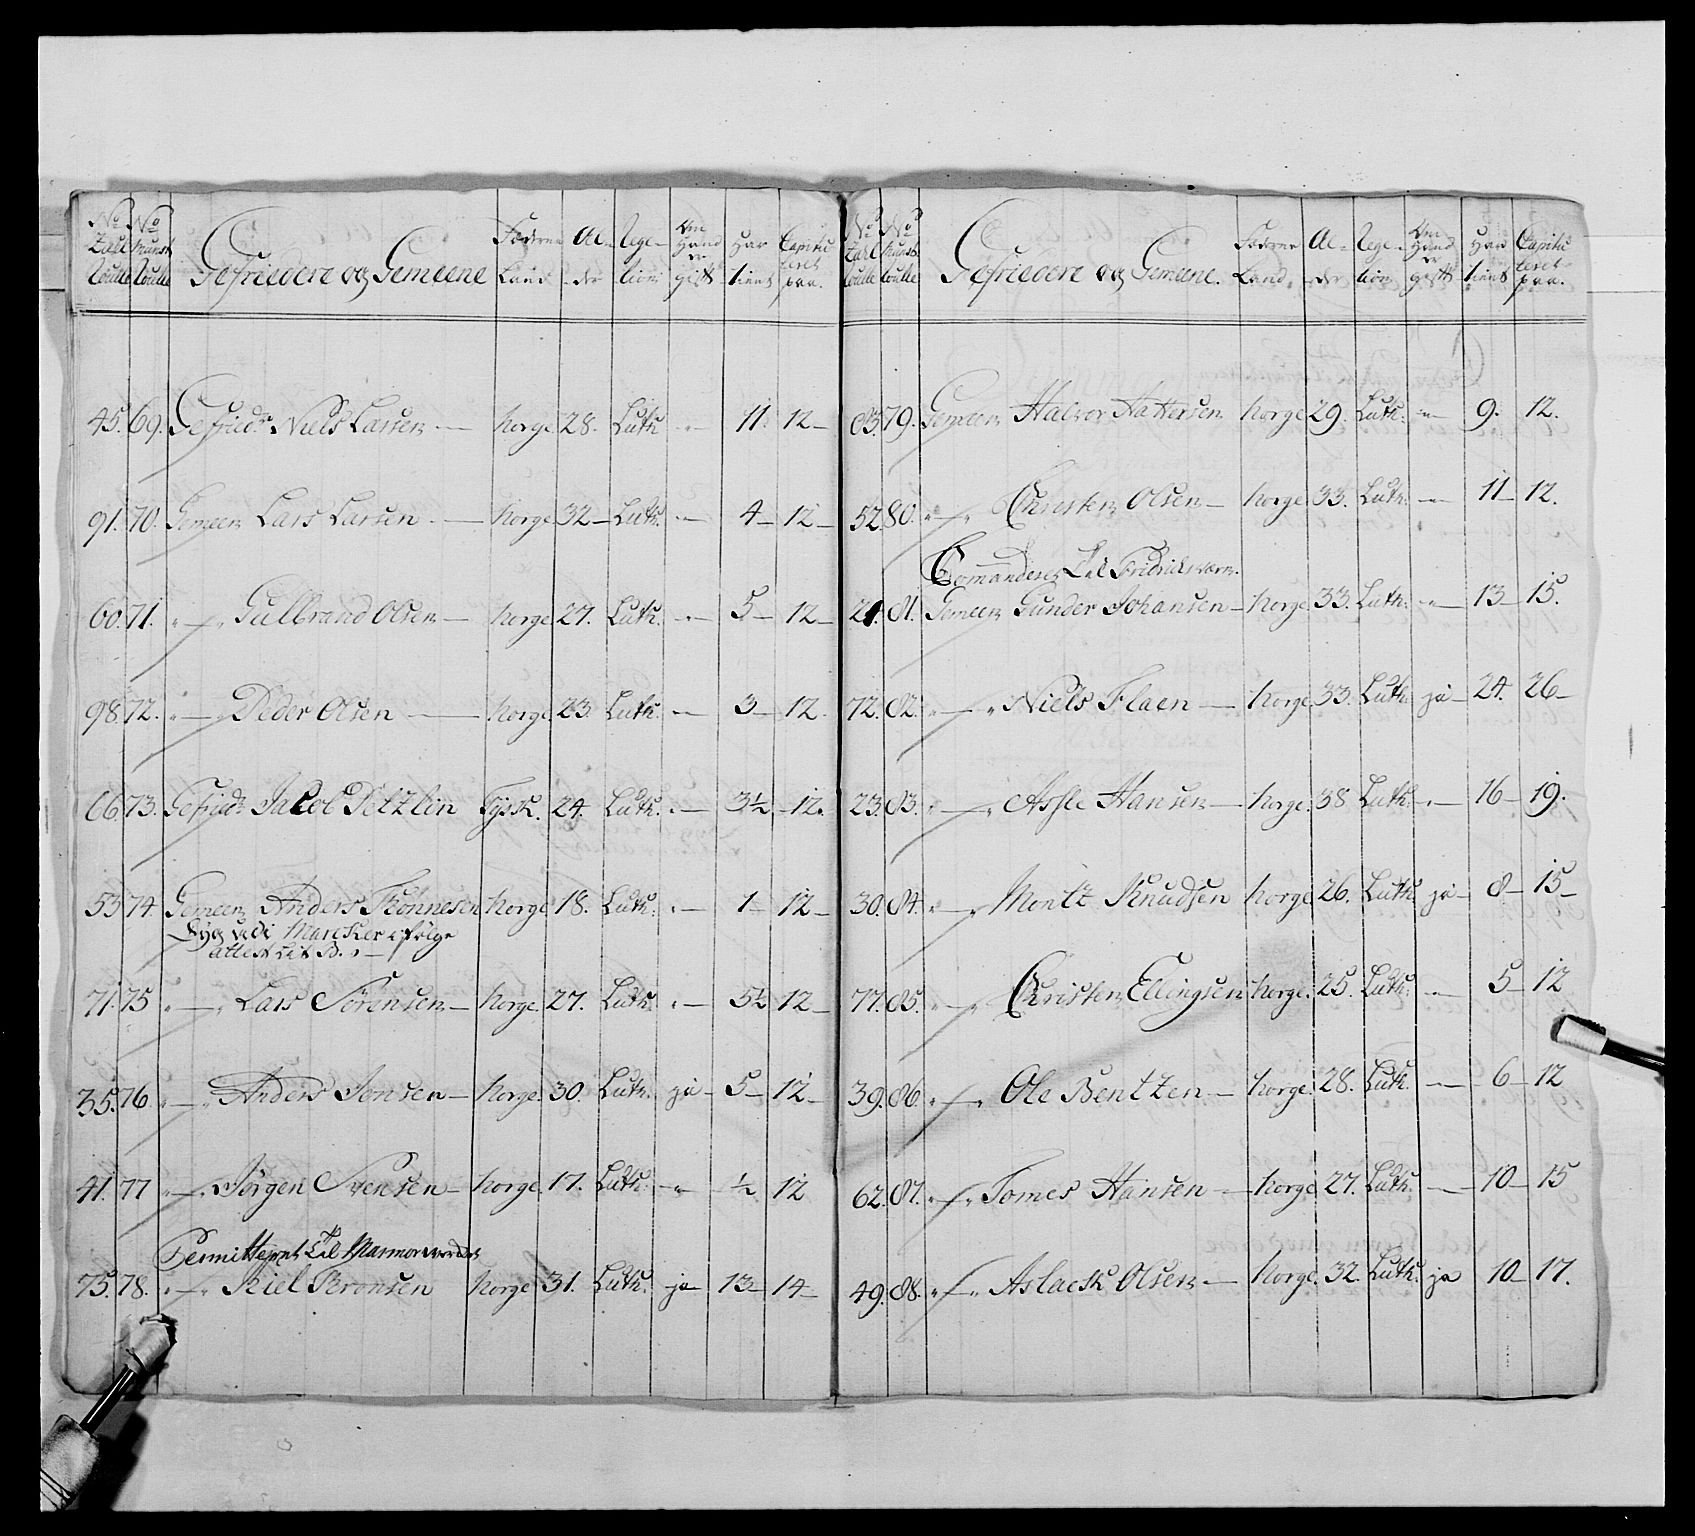 No No Gefriedere og Gemeene Fæderne Al- Relege- Om Hand er gift Har tient Capitu leret paa.
Zall Roulle Munst: Roulle Land der tion
45. 69. Gefridr Niels Larsen — Norge 28. Luth — 11. 12 —
91. 70. Gemeen Lars Larsen — Norge 32 — Luth. — 4 — 12 —
60. 71. Gulbrand Olsen — Norge 27. Luth. — 5 — 12 —
98. 72. Peder Olsen — Norge 23. Luth. — 3 — 12.
66. 73. Gefridr Jacob Petzlin Tysk. 24. Luth. — 3½ — 12.
53 74. Gemeen Anders Tönnesen Norge 18. Luth. — 1 — 12 —
Syg ved i Marcker i følge
attest Lit B. —
71. 75 Lars Sörensen — Norge. 27. Luth. — 5½ 12 —
35. 76 Anders Jensen — Norge. 30. Luth. ja — 5 — 12 —
41. 77 Jörgen Svensen — Norge. 17. Luth. — ½ 12
Permitteret Til Marmorwercket
75. 78. Kiel Bronsen Norge 31. Luth. ja 13 — 14 —
No No Gefriedere og Gemeene. Fæderne Al- Relege- Om Hand er gift Har tient Capitu leret paa.
Zall Roulle Munst: Roulle Land. der tion
83. 79. Gemeen Halvor Hattersen Norge 29. Luth. — 9. 12.
52. 80. Christen Olsen — Norge 33. Luth. — 11 — 12.
Commanderet Til Fridrichswærn.
24. 81. Gemeen Gunder Johansen — Norge 33. Luth. — 13 — 15.
72. 82. Niels Flaen — Norge 33. Luth. ja — 24. 26 —
23. 83. Assle Hansen — Norge. 38 Luth. — 16 — 19.
30. 84. Montz Knudsen Norge 26. Luth. ja — 8 — 15 —
77. 85. Christen Ellingsen Norge. 25. Luth. — 5 — 12
39. 86. Ole Bentzen — Norge. 28. Luth. — 6 — 12
62. 87. Tomes Hansen — Norge. 27. Luth. — 10 — 15
49. 88. Aslack Olsen — Norge. 32. Luth. ja 10 — 17.